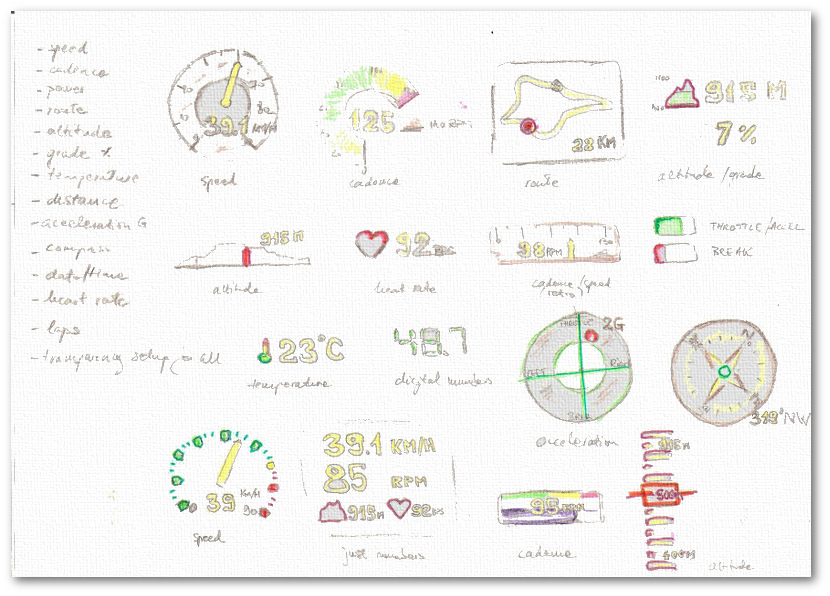 - speed
- cadence
- power
- route
- altitude
- grade %
- temperature
- distance
- acceleration G
- compass
- data/time
- heart rate
- laps
- transparency setup in all
39.1 KM/H
speed
125 140 RPM
cadence
28 KM
route
915 M
7 %
altitude/grade
915 M
altitude
92
heart rate
38 RPM
cadence/speed
retro
THROTTLE/ACCEL
BREAK
23°C
temperature
48.7
digital numbers
2G
LEFT
acceleration
N
349°NW
39 KM/H
90
speed
39.1 KM/H
85 RPM
915M 92
just numbers
95 RPM
cadence
915M
500
400M
altitude